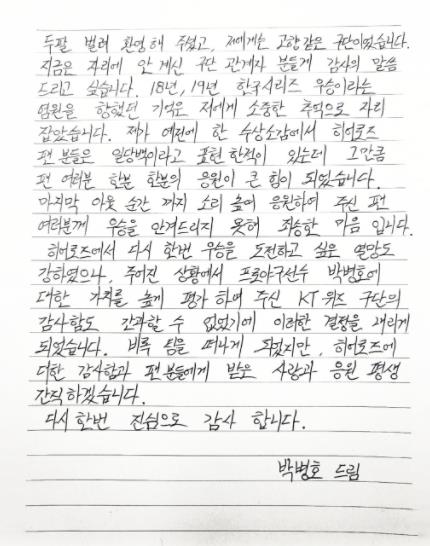 두팔 벌려 환영해 주셨고, 저에게는 고향같은 구단이었습니다.
지금은 자리에 안 계신 구단 관계자 분들께 감사의 말씀
드리고 싶습니다. 18년, 19년 한국시리즈 우승이라는
염원을 향했던 기억은 저에게 소중한 추억으로 자리
잡았습니다. 제가 예전에 한 수상소감에서 히어로즈
팬 분들은 일당백이라고 표현한적이 있는데 그만큼
팬 여러분 한분 한분의 응원이 큰 힘이 되었습니다.
마지막 아웃 순간 까지 소리 높여 응원하여 주신 팬
여러분께 우승을 안겨드리지 못해 죄송한 마음 입니다.
히어로즈에서 다시 한번 우승을 도전하고 싶은 열망도
강하였으나, 주어진 상황에서 프로야구선수 박병호에
대한 가치를 높게 평가 하여 주신 KT 위즈 구단의
감사함도 간과할 수 없었기에 이러한 결정을 내리게
되었습니다. 비록 팀을 떠나게 되었지만, 히어로즈에
대한 감사함과 팬 분들에게 받은 사랑과 응원 평생
간직하겠습니다.
다시 한번 진심으로 감사 합니다.
박병호 드림